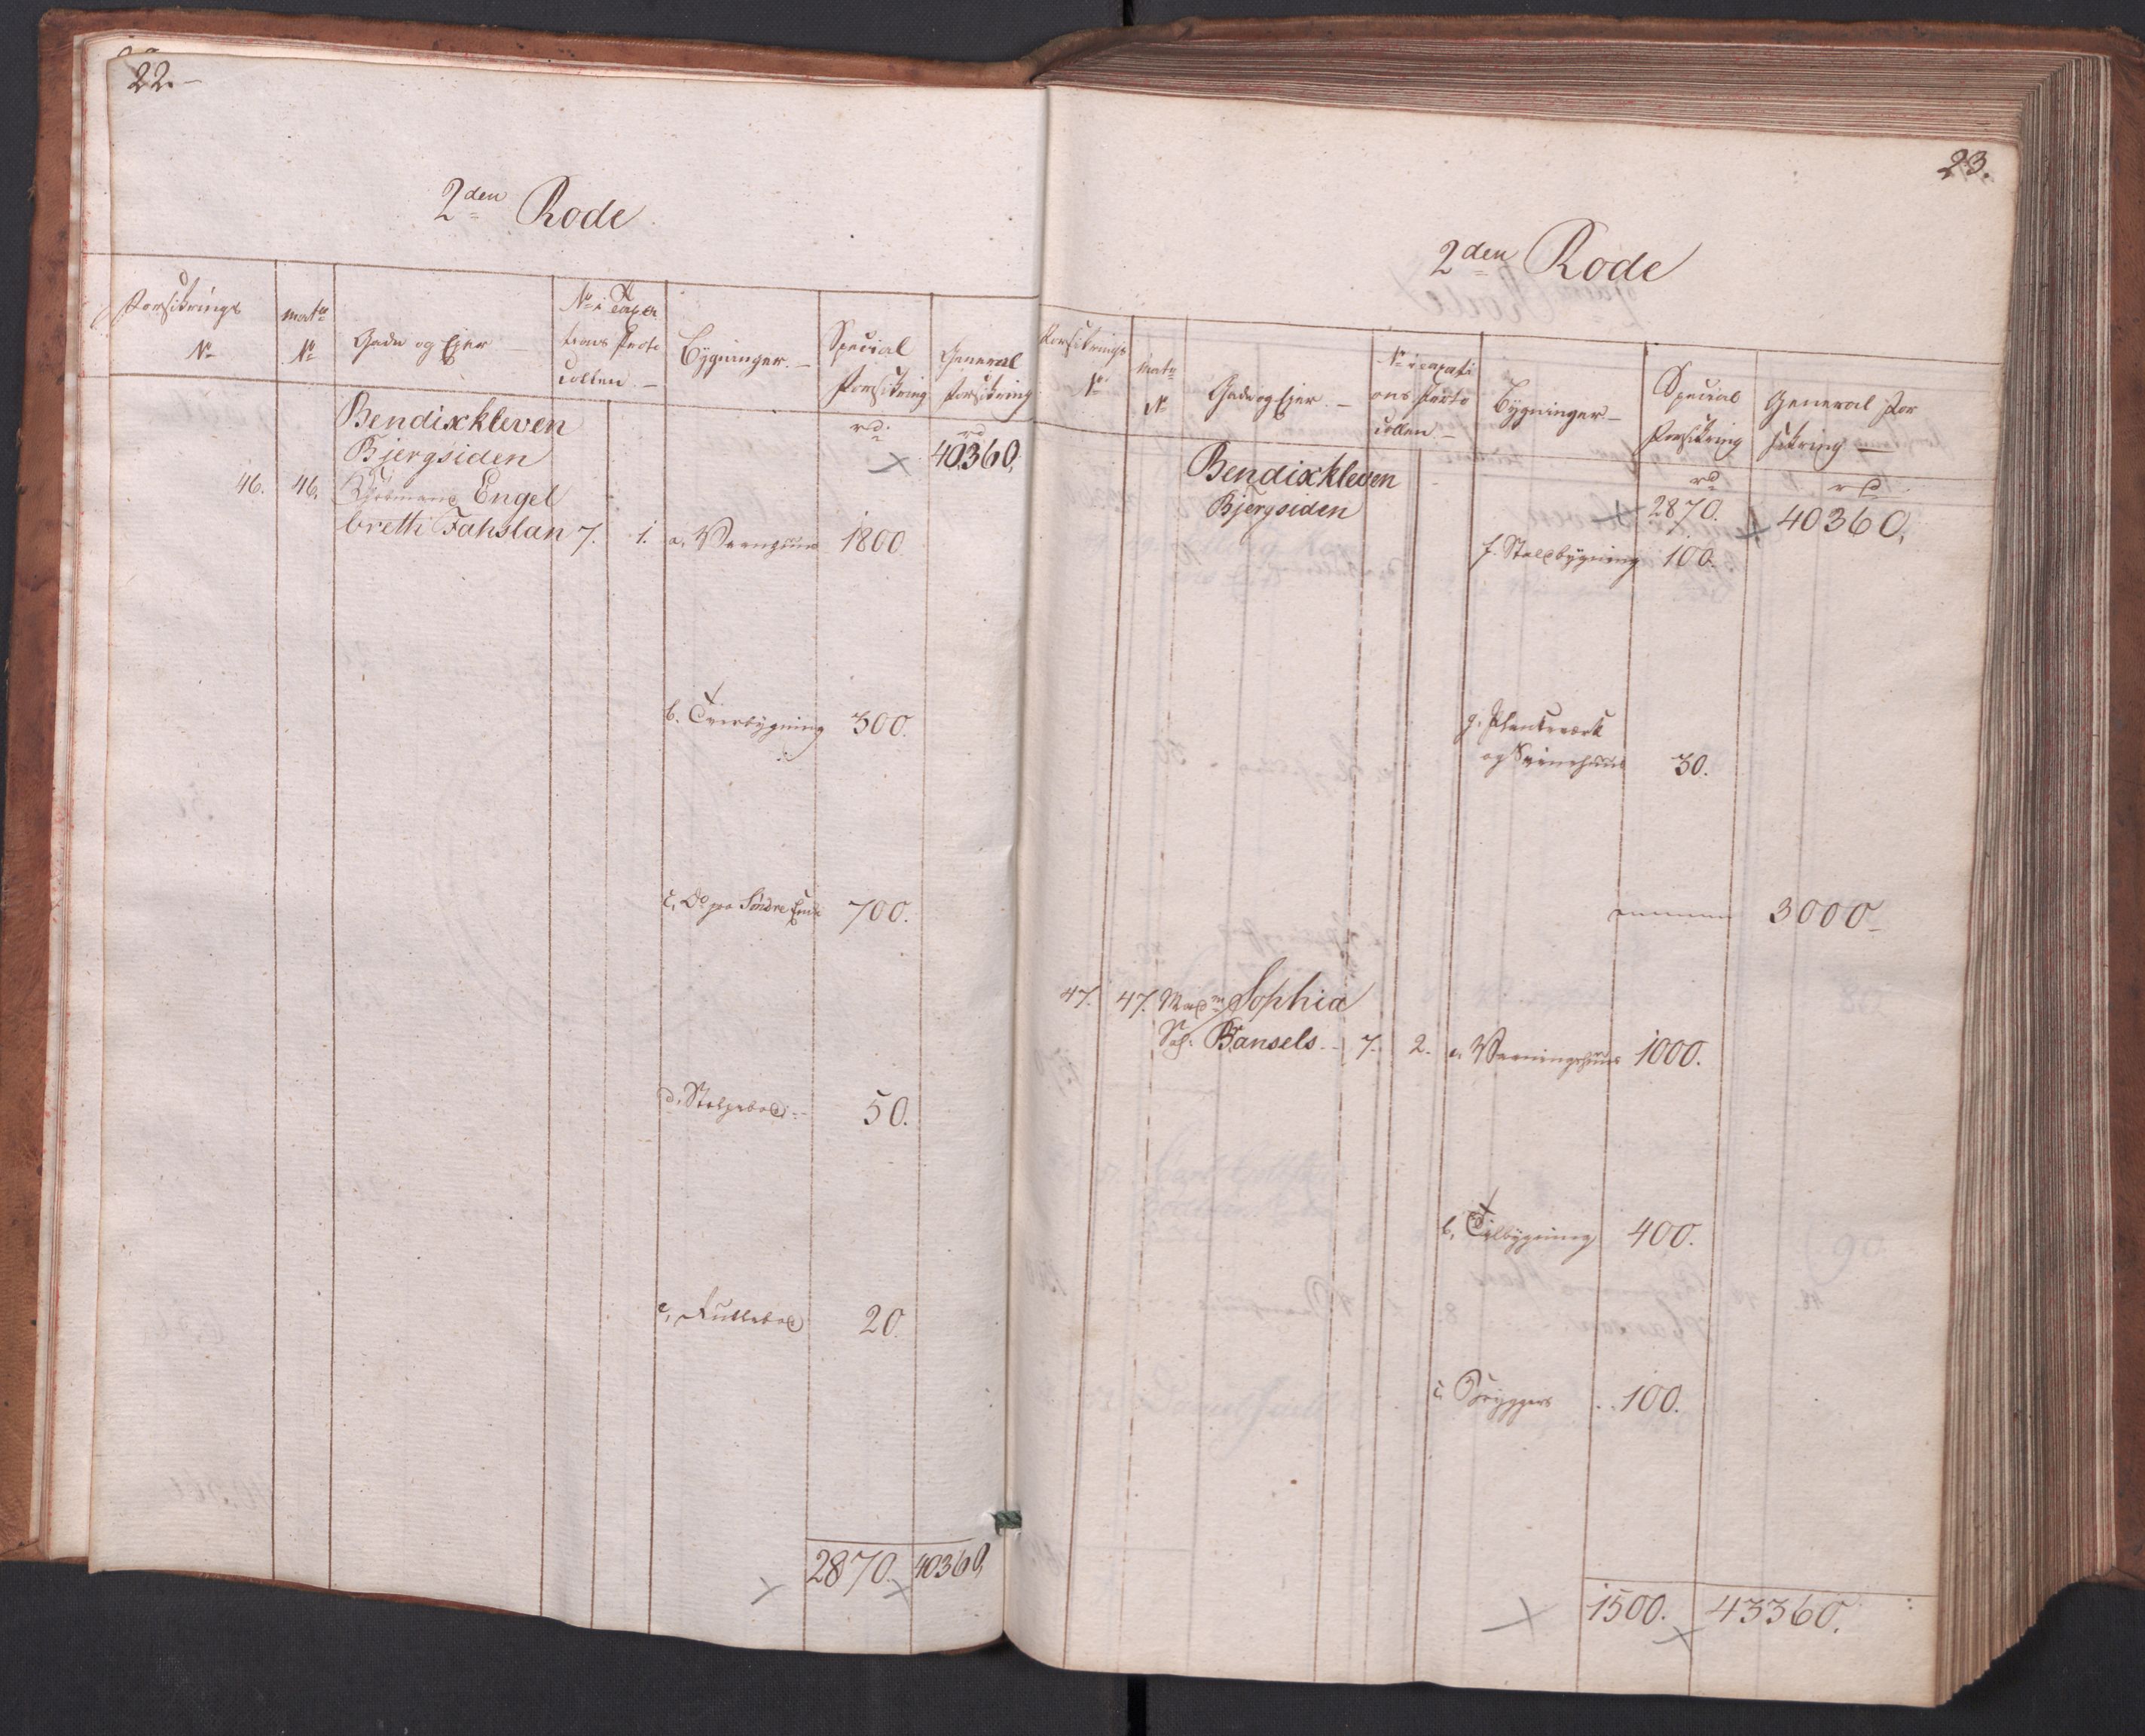 22.
2den Rode
Forsikrings No
matr No
Gade og Ejer
No i Taxa
tions Proto
collen.
Bygninger.
Special Forsikring
General Forsikring
Bendixkleven
rd.
rd
Bjergsiden
40360.
46. 46. Engel
breth Fahslan 7. 1. a, Vaanhuus 1800.
b. Tverbygning 300.
c, Do paa Søndre Ende 700.
d. Stolpebod 50.
e, Rullebod 20.
2870. 40360.
23.
2den Rode
Forsikrings No
Matr No
Gade og Ejer.
No i Taxati
ons Proto
collen.
Bygninger
Special Forsikring
General For
sikring
Bendixkleven
rd
rd
Bjergsiden
2870. 40360.
f. Staldbygning 100.
g. Plankeværk
og Svinehuus 30.
3000
47. 47. Madm Sophia
Sal: Bansels. 7. 2. a. Vaaningshuus 1000.
b. Tilbygning 400.
c. Bryggers 100.
1500. 43360.